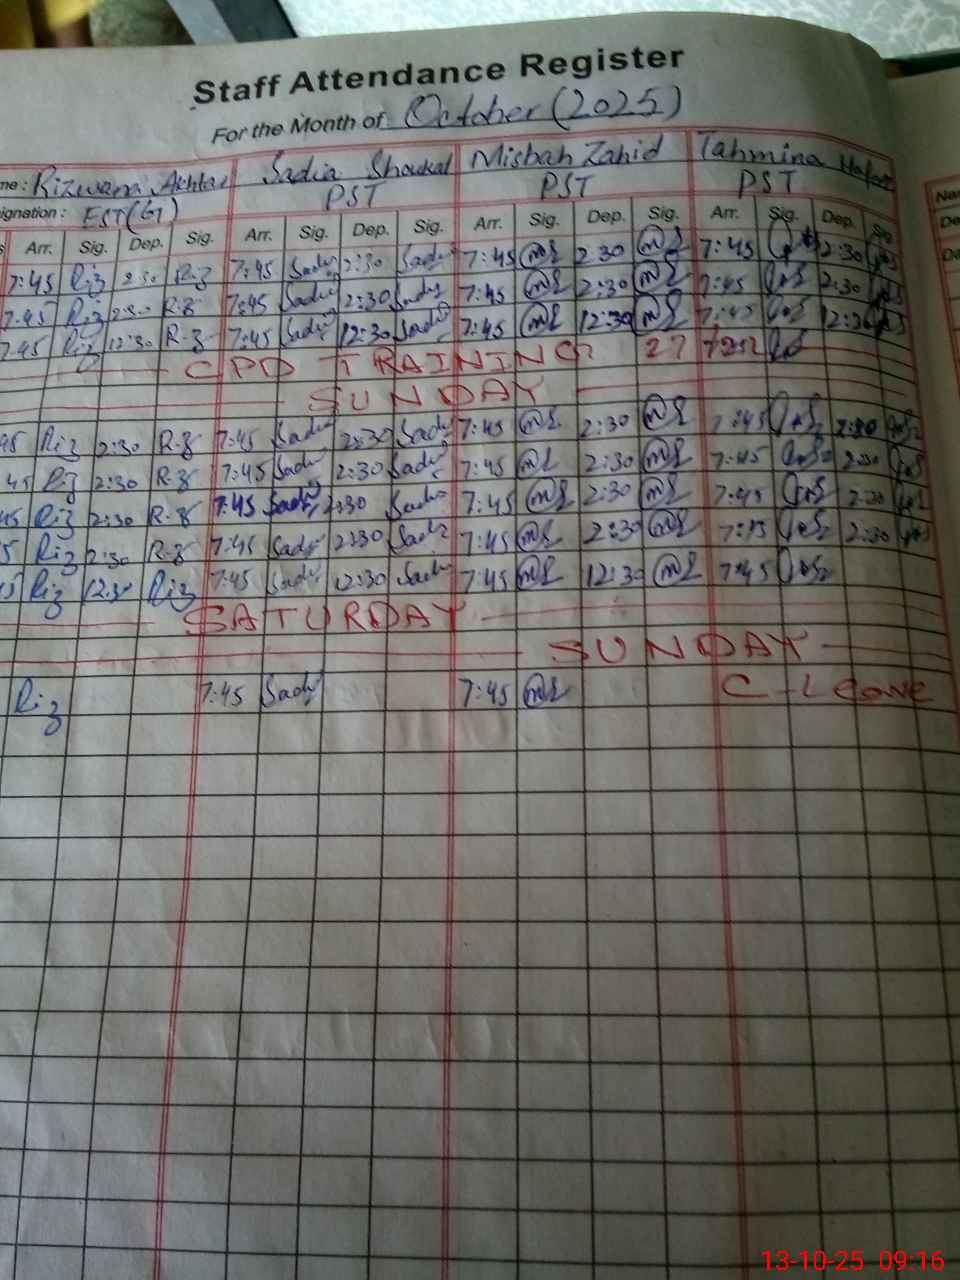 Staff Attendance Register
For the Month of October (2025)
me: Rizwana Akhtar Sadia Shoukat Misbah Zahid Tahmina
ignation: EST(G) PST PST PST
s Arr. Sig. Dep. Sig. Arr. Sig. Dep. Sig. Arr. Sig. Dep. Sig. Arr. Sig. Dep. Sig.
7:45 Riz 2:30 Riz 7:45 Sady 2:30 Sady 7:45 2:30 7:45 2:30
7:45 Riz 2:30 R.z 7:45 Sady 2:30 Sady 7:45 2:30 7:45 2:30
7:45 Riz 12:30 R.z 7:45 Sady 12:30 Sady 7:45 12:30 7:45 12:30
CPD TRAINING
SUNDAY
45 Riz 2:30 R.z 7:45 Sady 2:30 Sady 7:45 2:30 7:45 2:30
45 Riz 2:30 R.z 7:45 Sady 2:30 Sady 7:45 2:30 7:45 2:30
45 Riz 2:30 R.z 7:45 Sady 2:30 Sady 7:45 2:30 7:45 2:30
5 Riz 2:30 R.z 7:45 Sady 2:30 Sady 7:45 2:30 7:45 2:30
5 Riz 12:30 Riz 7:45 Sady 12:30 Sady 7:45 12:30 7:45
SATURDAY
SUNDAY
Riz 7:45 Sady 7:45 C-Leave
13-10-25 09:16